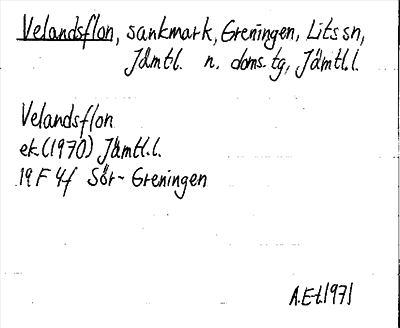 Velandsflon, sankmark, Greningen, Lits sn,
Jämtl. n. doms.tg, Jämtl.l.
Velandsflon
ek.(1970) Jämtl.l.
19 F 4f Sör-Greningen
A.E-t.1971